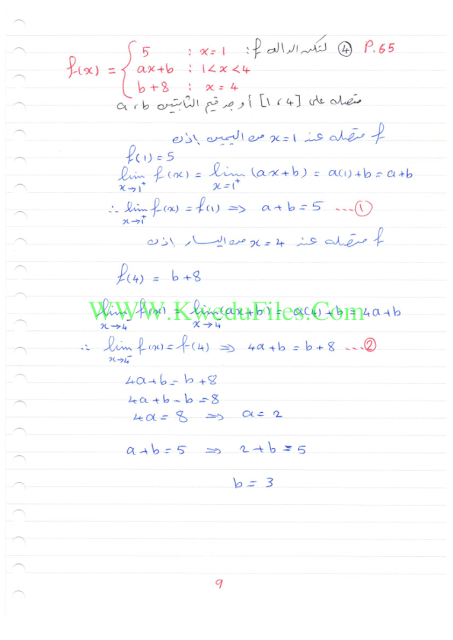 P.65 ④ لتكن الدالة f :
f(x) = { 5 : x=1
ax+b : 1<x<4
b+8 : x=4
متصلة على [1،4] أوجد قيم الثابتين a،b
f متصلة عند x=1 من اليمين اذن
f(1)=5
lim x→1⁺ f(x) = lim x=1⁺ (ax+b) = a(1)+b = a+b
∴ lim x→1⁺ f(x) = f(1) ⇒ a+b=5 ---①
f متصلة عند x=4 من اليسار اذن
f(4) = b+8
lim x→4⁻ f(x) = lim x→4 (ax+b) = a(4)+b = 4a+b
www.KweduFiles.Com
∴ lim x→4⁻ f(x) = f(4) ⇒ 4a+b = b+8 ---②
4a+b = b+8
4a+b-b=8
4a = 8 ⇒ a=2
a+b=5 ⇒ 2+b=5
b=3
9